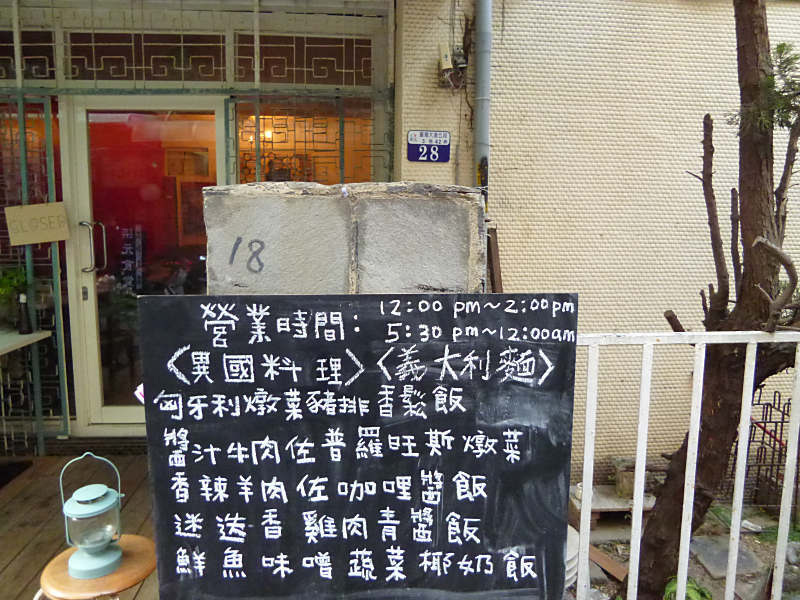 28
CLOSED
18
營業時間：12:00 pm～2:00pm
5:30 pm～12:00am
〈異國料理〉〈義大利麵〉
匈牙利燉菜豬排香鬆飯
醬汁牛肉佐普羅旺斯燉菜
香辣羊肉佐咖哩醬飯
迷迭香雞肉青醬飯
鮮魚味噌蔬菜椰奶飯